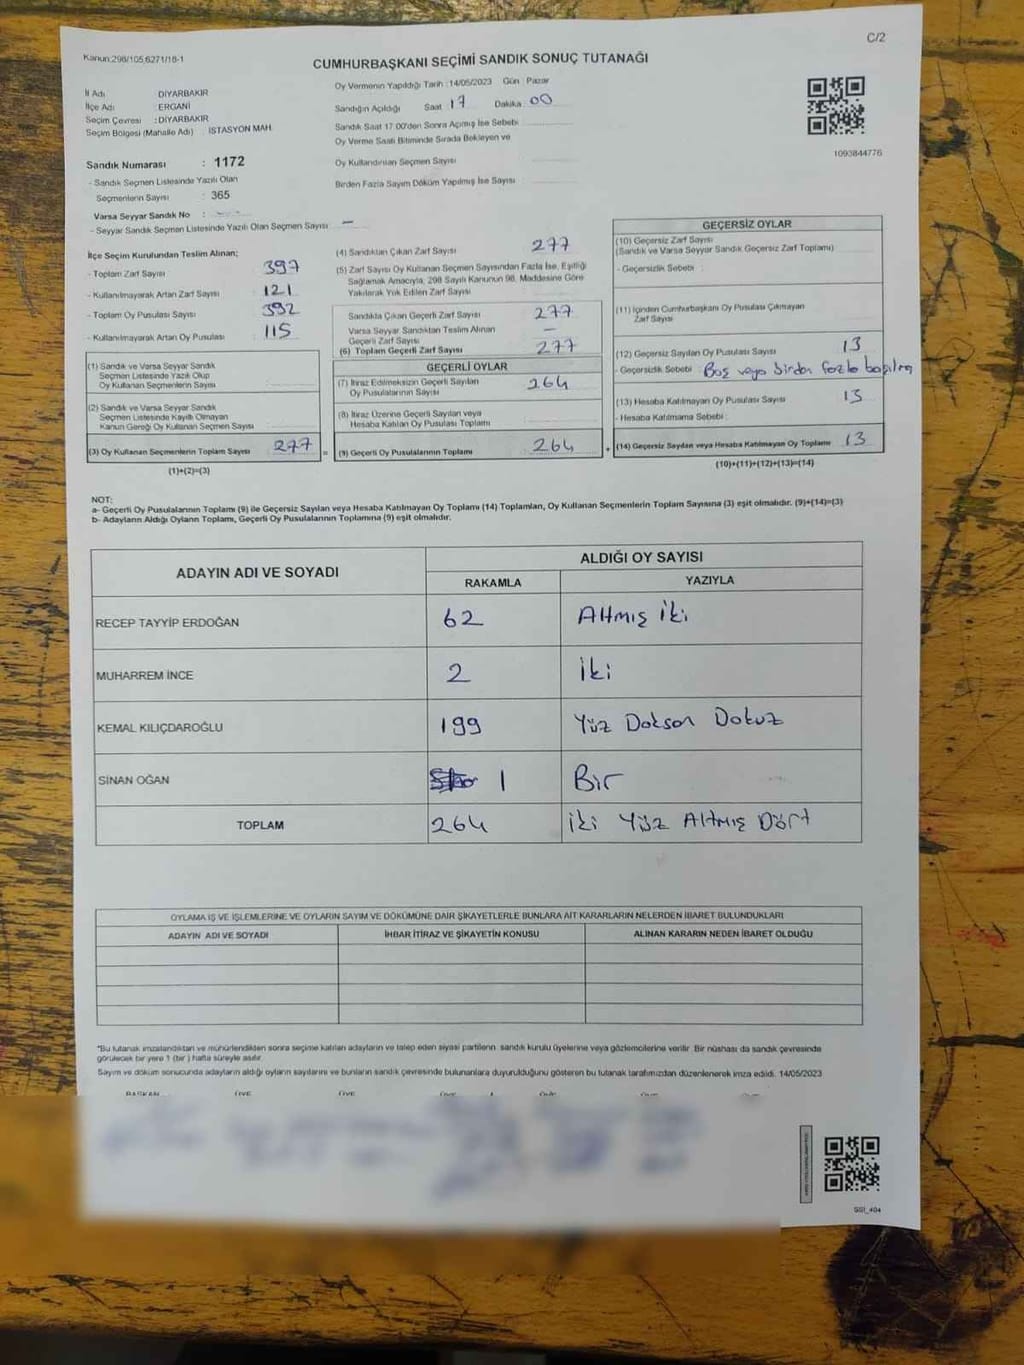 C/2
Kanun:298/105,6271/18-1
CUMHURBAŞKANI SEÇİMİ SANDIK SONUÇ TUTANAĞI
İl Adı DİYARBAKIR
İlçe Adı : ERGANİ
Seçim Çevresi : DİYARBAKIR
Seçim Bölgesi (Mahalle Adı) : İSTASYON MAH.
Sandık Numarası : 1172
- Sandık Seçmen Listesinde Yazılı Olan
Seçmenlerin Sayısı : 365
Varsa Seyyar Sandık No :
- Seyyar Sandık Seçmen Listesinde Yazılı Olan Seçmen Sayısı : —
Oy Vermenin Yapıldığı Tarih : 14/05/2023 Gün : Pazar
Sandığın Açıldığı Saat 17 Dakika 00
Sandık Saat 17:00'den Sonra Açılmış İse Sebebi :
Oy Verme Saati Bitiminde Sırada Bekleyen ve
Oy Kullandırılan Seçmen Sayısı :
Birden Fazla Sayım Döküm Yapılmış İse Sayısı :
1093844776
İlçe Seçim Kurulundan Teslim Alınan;
- Toplam Zarf Sayısı : 397
- Kullanılmayarak Artan Zarf Sayısı : 121
- Toplam Oy Pusulası Sayısı : 392
- Kullanılmayarak Artan Oy Pusulası : 115
(1) Sandık ve Varsa Seyyar Sandık
Seçmen Listesinde Yazılı Olup
Oy Kullanan Seçmenlerin Sayısı :
(2) Sandık ve Varsa Seyyar Sandık
Seçmen Listesinde Kayıtlı Olmayan
Kanun Gereği Oy Kullanan Seçmen Sayısı :
(3) Oy Kullanan Seçmenlerin Toplam Sayısı 277 =
(1)+(2)=(3)
(4) Sandıktan Çıkan Zarf Sayısı : 277
(5) Zarf Sayısı Oy Kullanan Seçmen Sayısından Fazla İse, Eşitliği
Sağlamak Amacıyla, 298 Sayılı Kanunun 98. Maddesine Göre
Yakılarak Yok Edilen Zarf Sayısı :
Sandıkta Çıkan Geçerli Zarf Sayısı : 277
Varsa Seyyar Sandıktan Teslim Alınan
Geçerli Zarf Sayısı : —
(6) Toplam Geçerli Zarf Sayısı : 277
GEÇERLİ OYLAR
(7) İtiraz Edilmeksizin Geçerli Sayılan
Oy Pusulalarının Sayısı : 264
(8) İtiraz Üzerine Geçerli Sayılan veya
Hesaba Katılan Oy Pusulası Toplamı :
(9) Geçerli Oy Pusulalarının Toplamı : 264 +
GEÇERSİZ OYLAR
(10) Geçersiz Zarf Sayısı
(Sandık ve Varsa Seyyar Sandık Geçersiz Zarf Toplamı) :
- Geçersizlik Sebebi :
(11) İçinden Cumhurbaşkanı Oy Pusulası Çıkmayan
Zarf Sayısı :
(12) Geçersiz Sayılan Oy Pusulası Sayısı : 13
- Geçersizlik Sebebi : Boş veya birden fazla basılmış
(13) Hesaba Katılmayan Oy Pusulası Sayısı : 13
- Hesaba Katılmama Sebebi :
(14) Geçersiz Sayılan veya Hesaba Katılmayan Oy Toplamı : 13
(10)+(11)+(12)+(13)=(14)
NOT:
a- Geçerli Oy Pusulalarının Toplamı (9) ile Geçersiz Sayılan veya Hesaba Katılmayan Oy Toplamı (14) Toplamları, Oy Kullanan Seçmenlerin Toplam Sayısına (3) eşit olmalıdır. (9)+(14)=(3)
b- Adayların Aldığı Oyların Toplamı, Geçerli Oy Pusulalarının Toplamına (9) eşit olmalıdır.
ADAYIN ADI VE SOYADI ALDIĞI OY SAYISI
RAKAMLA YAZIYLA
RECEP TAYYİP ERDOĞAN 62 Altmış İki
MUHARREM İNCE 2 İki
KEMAL KILIÇDAROĞLU 199 Yüz Doksan Dokuz
SİNAN OĞAN 1 Bir
TOPLAM 264 İki Yüz Altmış Dört
OYLAMA İŞ VE İŞLEMLERİNE VE OYLARIN SAYIM VE DÖKÜMÜNE DAİR ŞİKAYETLERLE BUNLARA AİT KARARLARIN NELERDEN İBARET BULUNDUKLARI
ADAYIN ADI VE SOYADI İHBAR İTİRAZ VE ŞİKAYETİN KONUSU ALINAN KARARIN NEDEN İBARET OLDUĞU
*Bu tutanak imzalandıktan ve mühürlendikten sonra seçime katılan adayların ve talep eden siyasi partilerin sandık kurulu üyelerine veya gözlemcilerine verilir. Bir nüshası da sandık çevresinde
görülecek bir yere 1 (bir) hafta süreyle asılır.
Sayım ve döküm sonucunda adayların aldığı oyların sayılarını ve bunların sandık çevresinde bulunanlara duyurulduğunu gösteren bu tutanak tarafımızdan düzenlenerek imza edildi. 14/05/2023
BAŞKAN ÜYE ÜYE ÜYE ÜYE ÜYE ÜYE
SSI_404